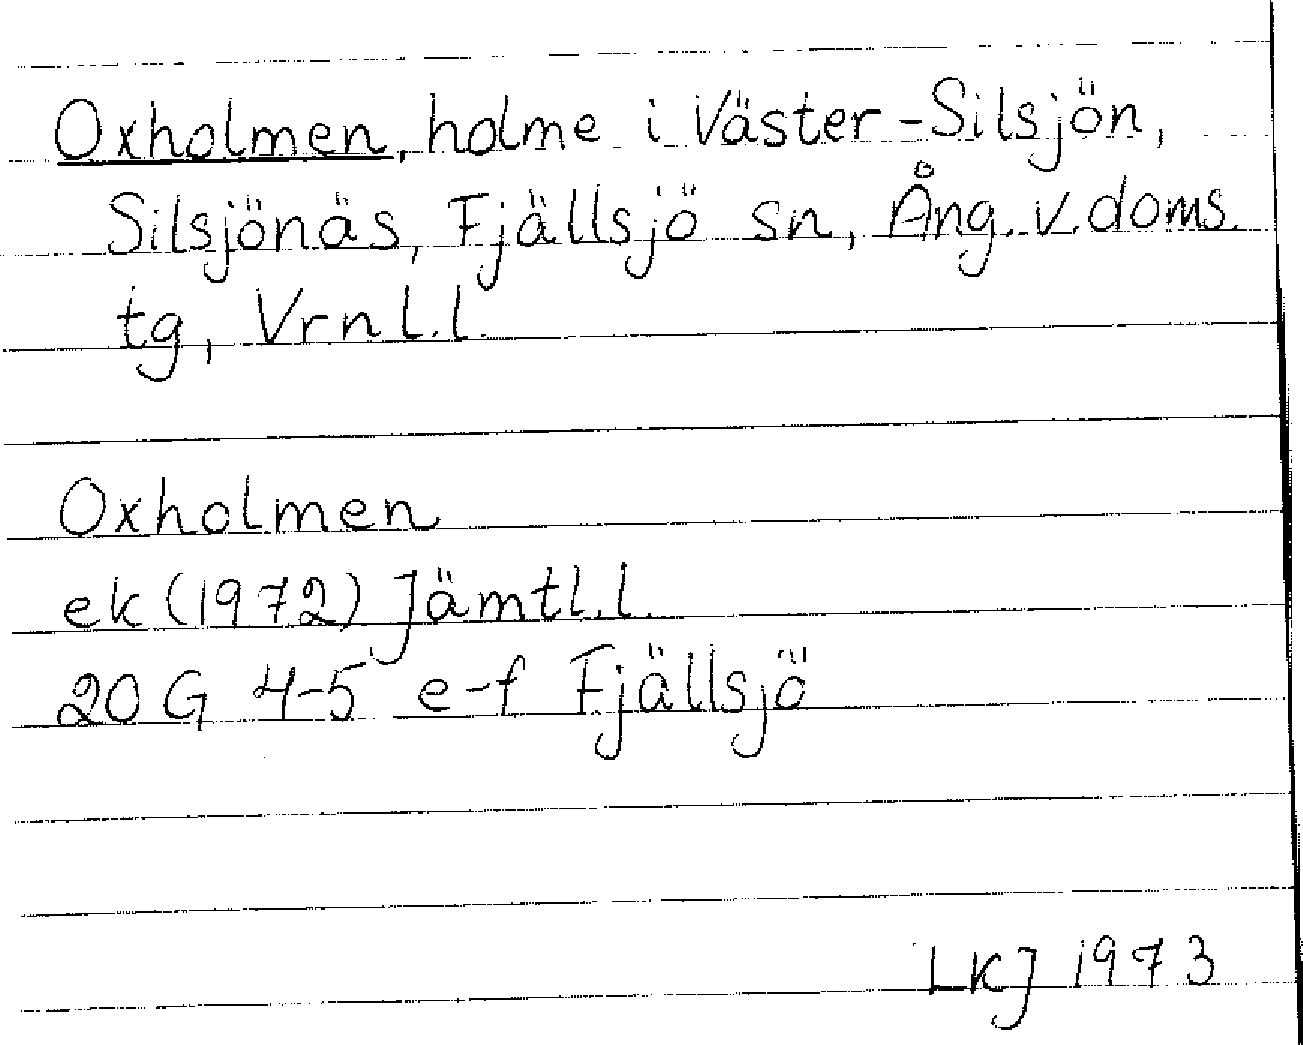 Oxholmen, holme i Väster-Silsjön,
Silsjönäs, Fjällsjö sn, Ång. v. doms.
tg, Vrnl. l.
Oxholmen
ek (1972) Jämtl. l.
20 G 4-5 e-f Fjällsjö
LKJ 1973